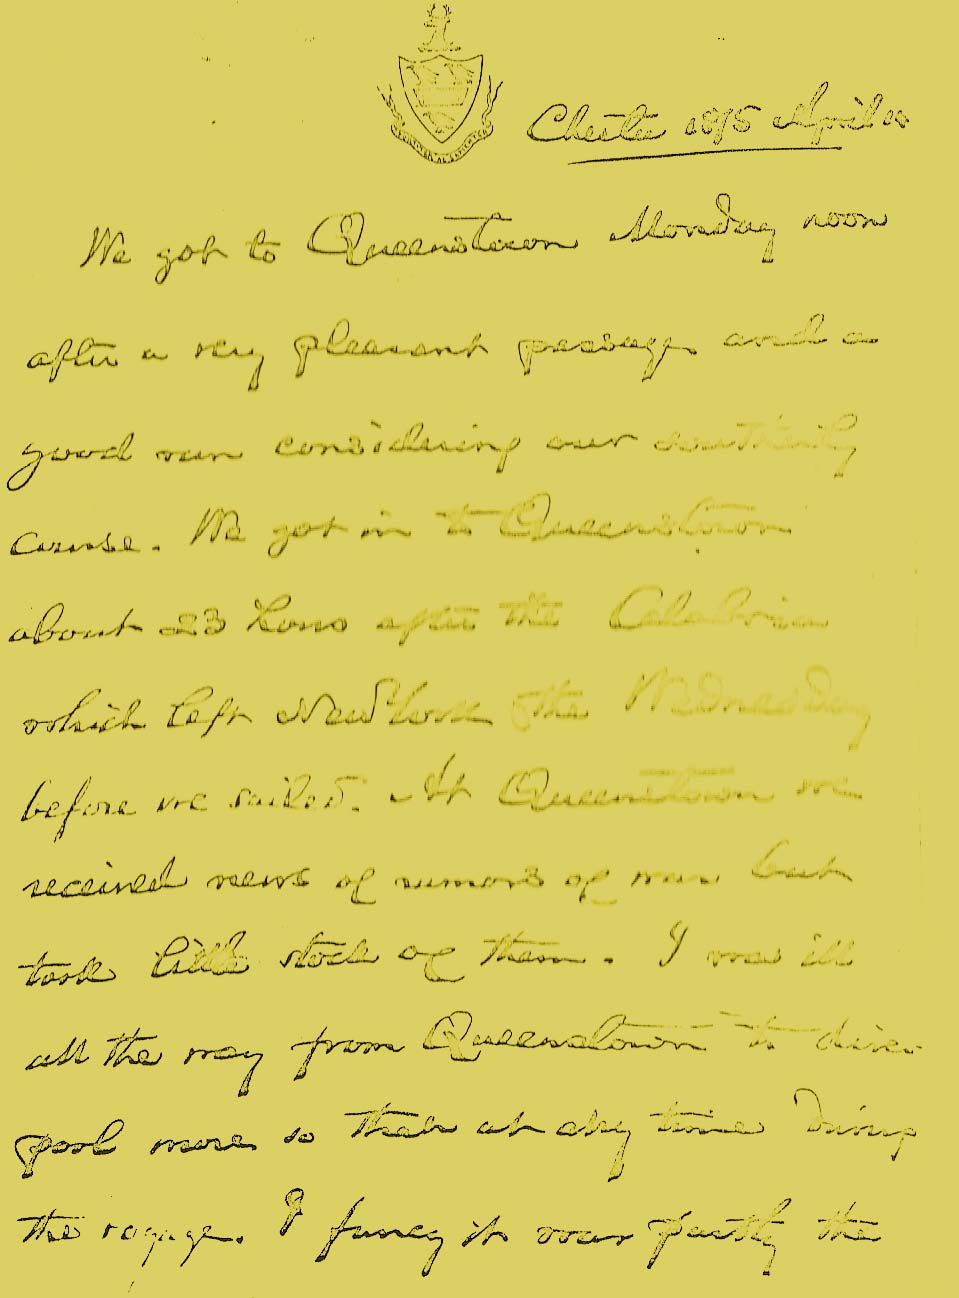 Chester 1875 April
We got to Queenstown Monday noon
after a very pleasant passage and a
good run considering our southerly
course. We got in to Queenstown
about 23 hours after the Calabria
which left New York the Wednesday
before we sailed. At Queenstown we
received news of rumors of war but
took little stock of them. I was ill
all the way from Queenstown to Liver-
pool more so than at any time during
the voyage. I fancy it was partly the